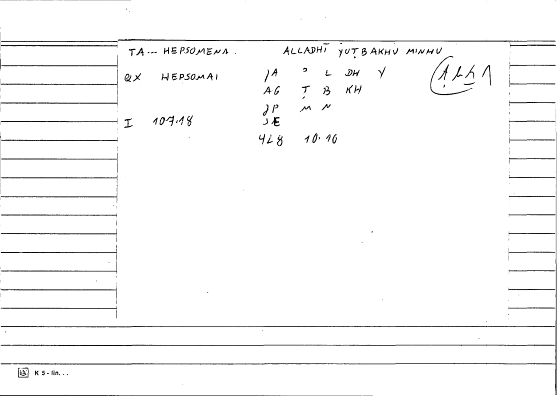 TA--- HEPSOMENA. ALLADHĪ YUṬBAKHU MINHU
QX HEPSOMAI JA ʾ L DH Y
AG Ṭ B KH
JP M N
I 10.7.18 JE
4L8 10.10
K 5 - lin. . .